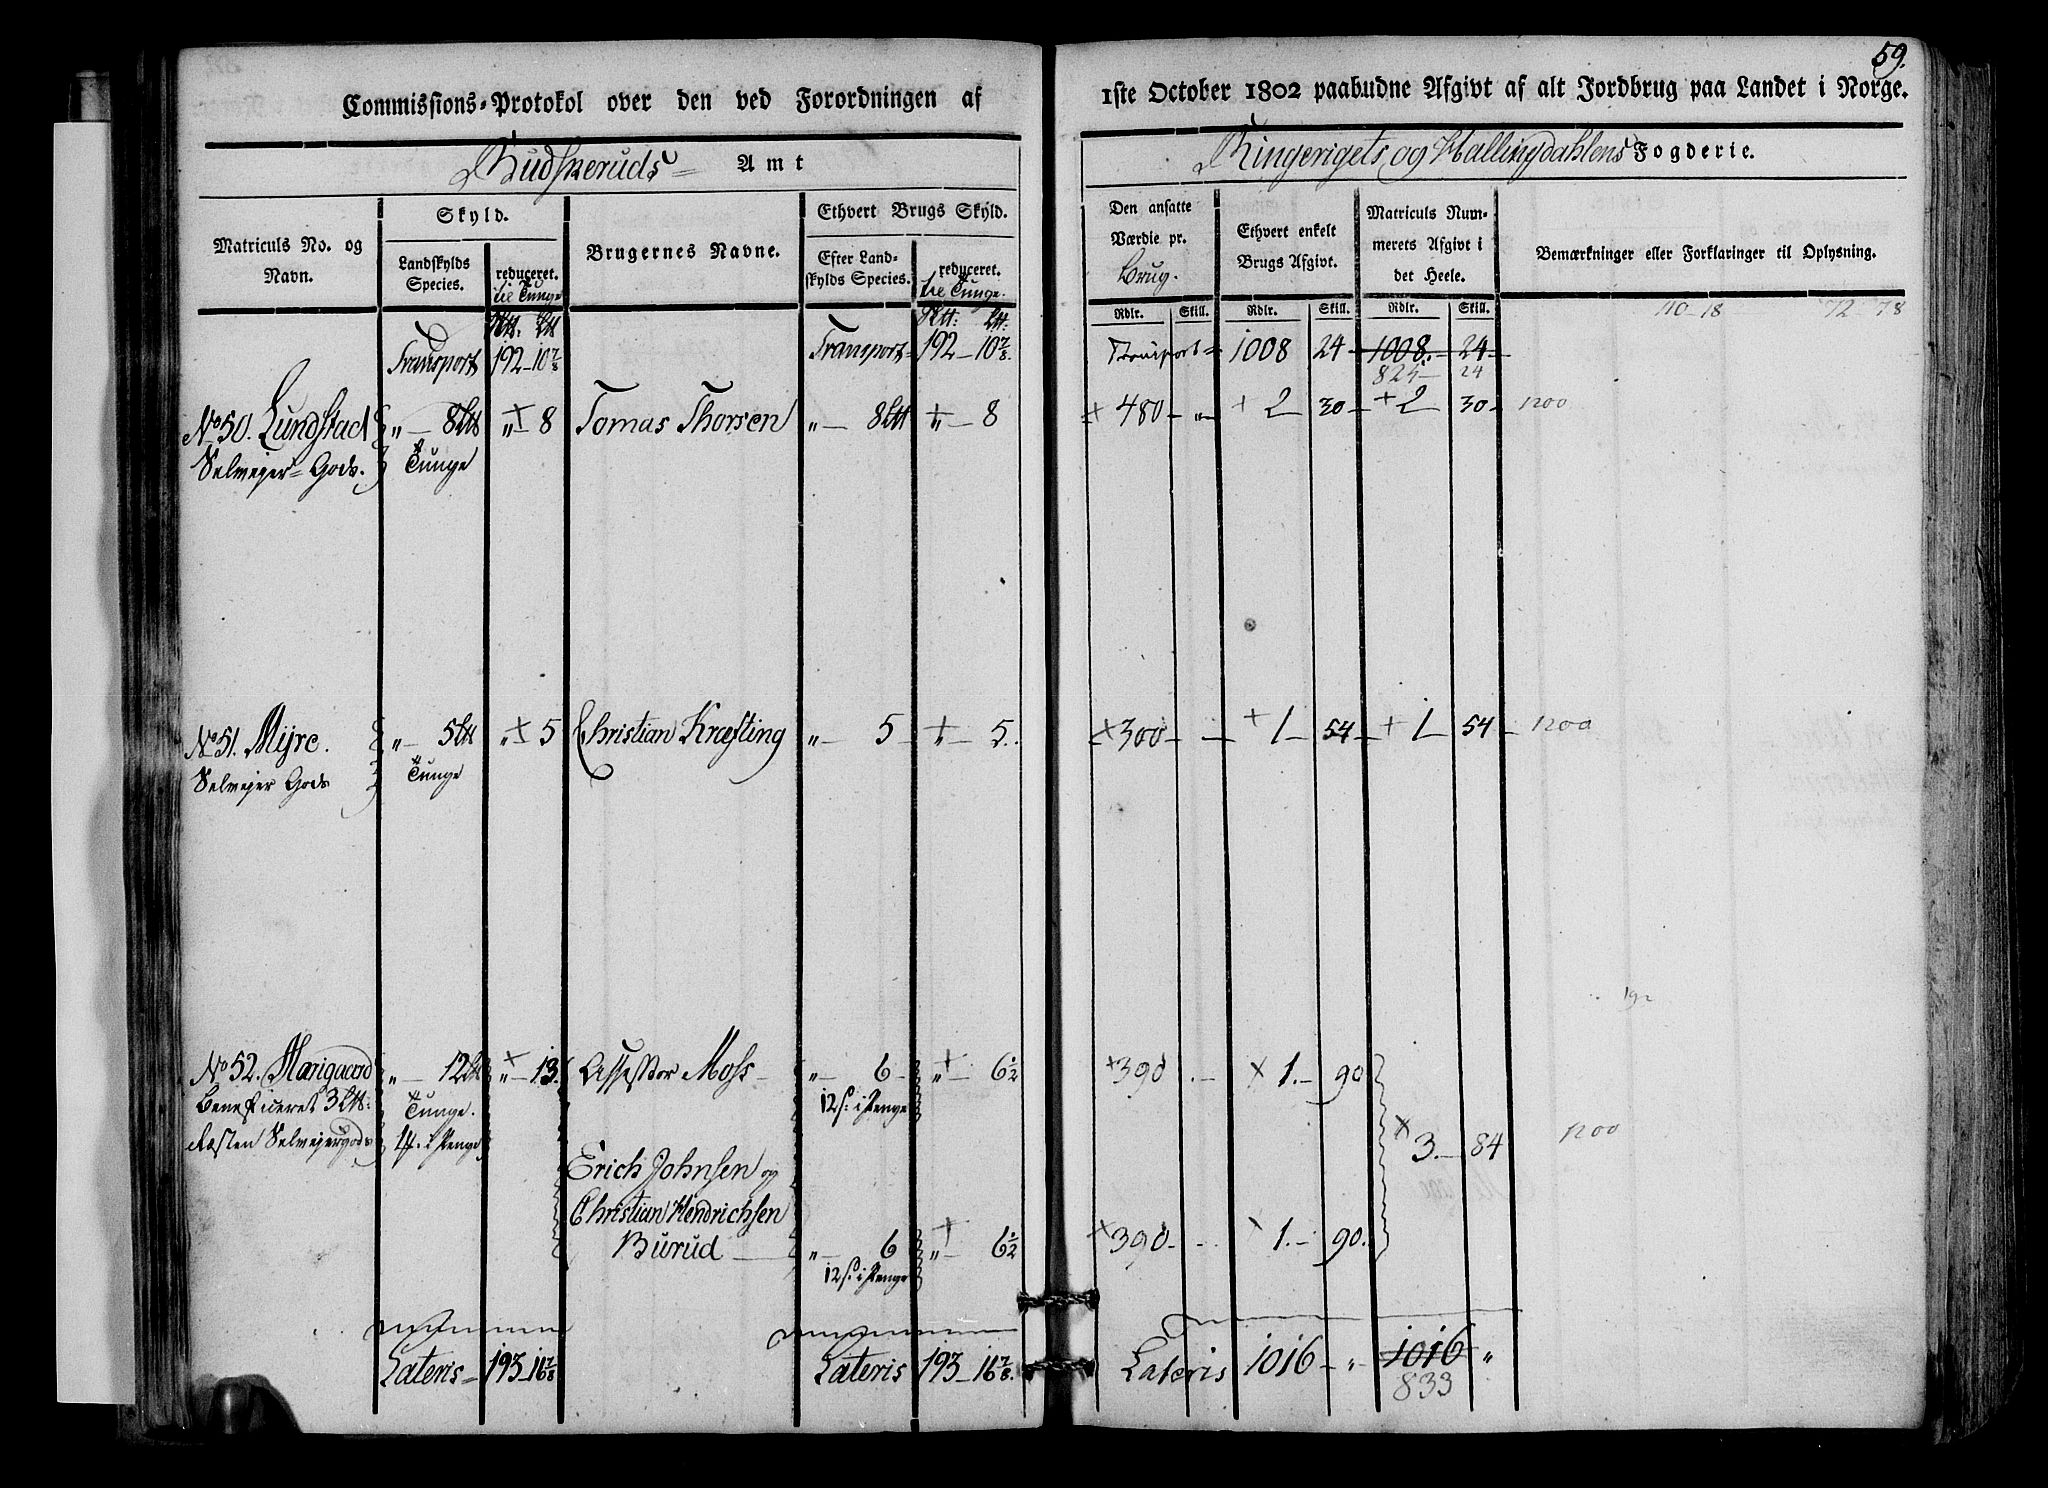 59.
Commissions-Protokol over den ved Forordningen af 1ste October 1802 paabudne Afgivt af alt Jordbrug paa Landet i Norge.
Budskeruds Amt Ringerigets og Hallingdahlens Fogderie.
Matriculs No. og Navn.
Skyld.
Landskylds Species.
reduceret. til Tunge
Brugernes Navne.
Ethvert Brugs Skyld.
Efter Landskylds Species.
reduceret. til Tunge.
Den ansatte Værdie pr. Brug.
Ethvert enkelt Brugs Afgivt.
Matriculs Nummerets Afgivt i det Heele.
Bemærkninger eller Forklaringer til Oplysning.
Rdlr. Skill. Rdlr. Skill. Rdlr. Skill.
Transport 192-10 7/8 Transport 192-10 7/8 Transport 1008 24 1008. 24
825 24
No 50. Lundstad „ 8 „ 8 Tomas Thorsen „ 8 „ 8 480 „ + 2 30 + 2 30 1200
Selvejer Gods. Tunge
No 51. Mÿre. „ 5 „ 5 Christian Kræfting „ 5 „ 5. 300 + 1 54 + 1 54 1200
Selvejer Gods Tunge
No 52. Horigaard „ 12 „ 13. Assessor Moss „ 6 „ 6 1/2 390 1. 90
Beneficeret 3 Tunge. 12 s. i Penge
Resten Selvejergods i Penge 3. 84 1200
Erich Johnsen og
Christian Hendrichsen
Burud „ 6 „ 6 1/2 390 1. 90.
12 s. i Penge
Lateris 193-16 7/8 Lateris 193-16 7/8. Lateris 1016 „ 1016 „
833